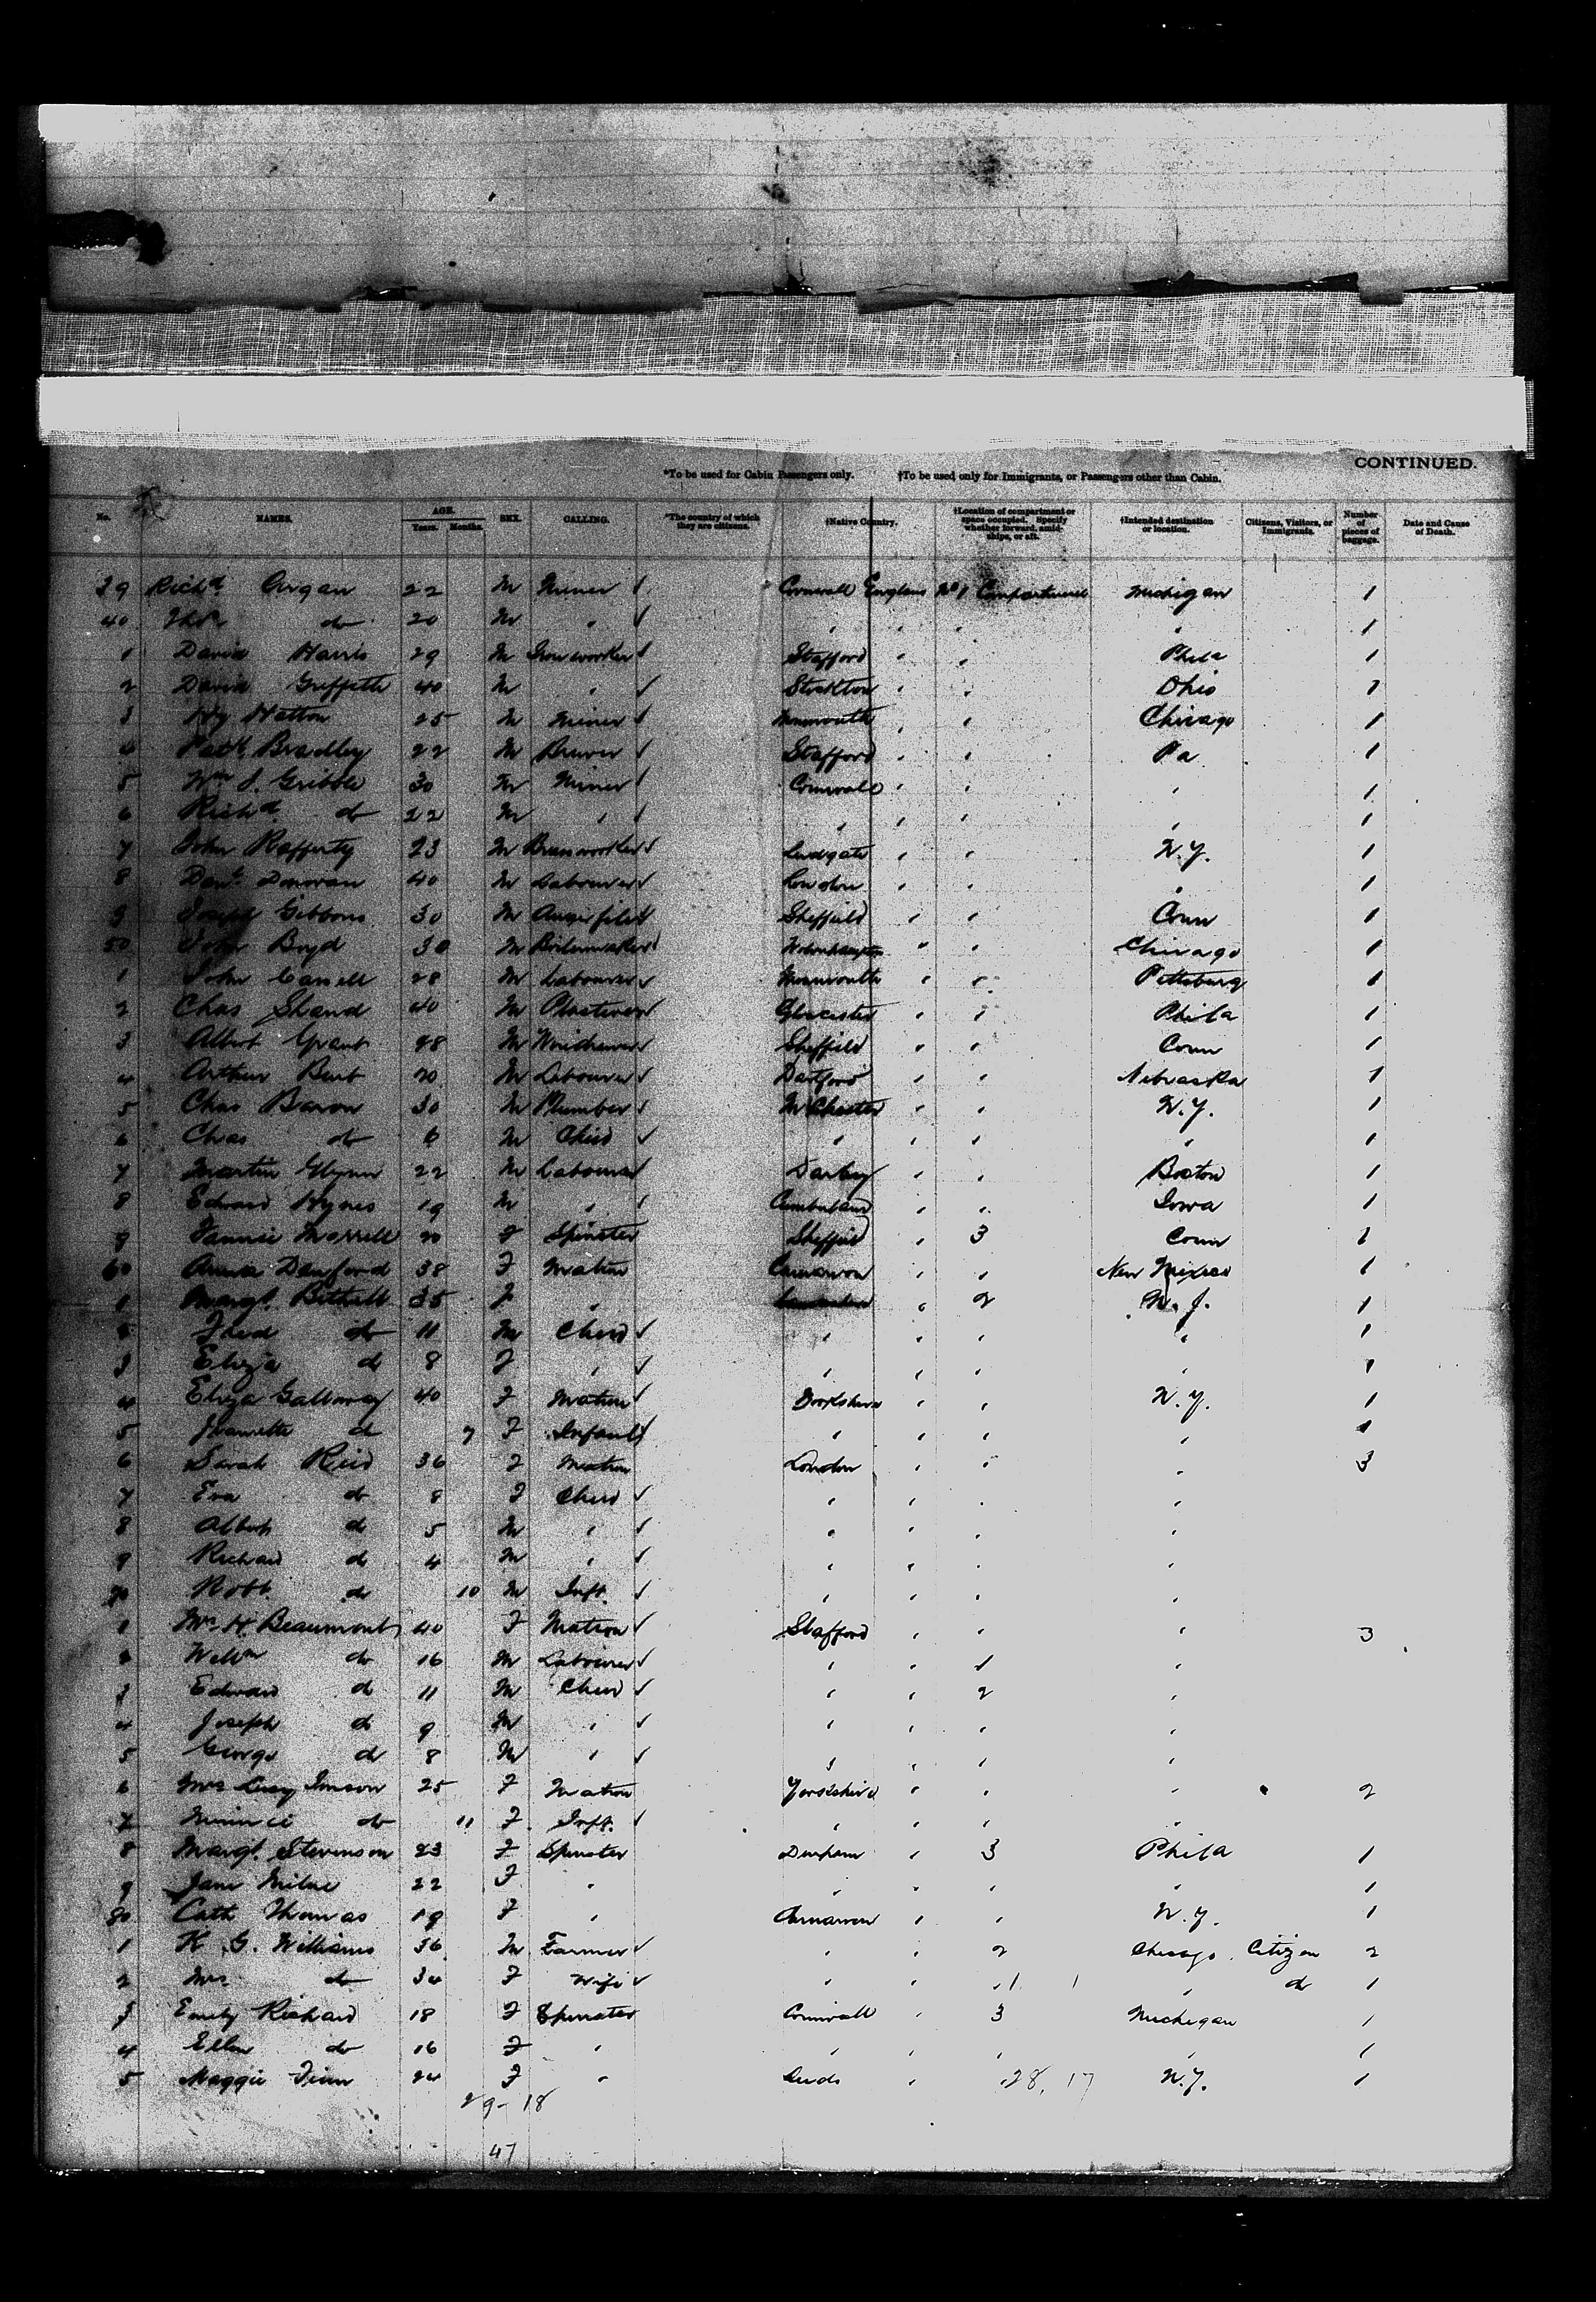 CONTINUED.
*To be used for Cabin Passengers only. †To be used only for Immigrants, or Passengers other than Cabin.
No. NAMES. AGE. Years. Months. SEX. CALLING. *The country of which they are citizens. †Native Country. †Location of compartment or space occupied. Specify whether forward, amidships, or aft. †Intended destination or location. Citizens, Visitors, or Immigrants. Number of pieces of baggage. Date and Cause of Death.
39 Richd Organ 22 M Miner ✓ Cornwall England No 1 Compartment Michigan 1
40 Thos do 20 M " ✓ " " " " 1
1 David Harris 29 M Ironworker ✓ Stafford " " Phila 1
2 David Griffith 40 M " ✓ Stockton " " Ohio 1
3 Hy Hatton 25 M Miner ✓ Monmouth " " Chicago 1
4 Patk Bradley 22 M Brewer ✓ Stafford " " Pa 1
5 Wm J. Gribble 30 M Miner ✓ Cornwall " " " 1
6 Richd do 22 M " ✓ " " " " 1
7 John Rafferty 23 M Brassworker ✓ Ludgate " " N.Y. 1
8 Danl Donovan 40 M Labourer ✓ London " " " 1
9 Joseph Gibbons 30 M Sheffield " " Conn 1
50 John Boyd 30 M Boilermaker ✓ Wolverhampton " " Chicago 1
1 John 28 M Labourer ✓ Monmouth " " Pittsburg 1
2 Chas Shand 40 M Plasterer ✓ Glocester " " Phila 1
3 Albert Grant 28 M ✓ Sheffield " " Conn 1
4 Arthur Burt 20 M Labourer ✓ Dartford " " Nebraska 1
5 Chas Baron 30 M Plumber ✓ M Chester " " N.Y. 1
6 Chas do 6 M Child ✓ " " " " 1
7 Martin Glynn 22 M Labourer ✓ Darby " " Boston 1
8 Edward Hynes 19 M " ✓ Cumberland " " Iowa 1
9 Fannie Morrell 20 F Spinster Sheffield " 3 Conn 1
60 Anna Danford 38 F Matron Carnarvon " " New Mexico 1
1 Margt. Bithell 35 F " " 2 N.J. 1
2 Fred do 11 M Child ✓ " " " " 1
3 Eliza do 8 F " ✓ " " " " 1
4 Eliza Galloway 40 F Matron ✓ Yorkshire " " N.Y. 1
5 Jeannette do 7 F Infant ✓ " " " " 1
6 Sarah Reid 36 F Matron London " " " 3
7 Eva do 8 F Child ✓ " " " "
8 Albert do 5 M " ✓ " " " "
9 Richard do 4 M " ✓ " " " "
70 Robt. do 10 M Inft. ✓ " " " "
1 Mrs H. Beaumont 40 F Matron ✓ Stafford " " " 3
2 Willm do 16 M Labourer ✓ " " 1 "
3 Edward do 11 M Child ✓ " " 2 "
4 Joseph do 9 M " ✓ " " " "
5 George do 8 M " ✓ " " " "
6 Mrs Lucy Imson 25 F Matron Yorkshire " " " 2
7 Minnie do 11 F Inft. ✓ " " " "
8 Margt. Stevenson 23 F Spinster Durham " 3 Phila 1
9 Jane Milne 22 F " " " " " 1
80 Cath Thomas 19 F " Carnarvon " " N.Y. 1
1 K. G. Williams 36 M Farmer ✓ " " 2 Chicago Citizen 2
2 Mrs do 34 F Wife ✓ " " " " do 1
3 Emily Richard 18 F Spinster Cornwall " 3 Michigan 1
4 Ellen do 16 F " " " " " 1
5 Maggie Finn 24 F " Leeds " " 28, 17 N.Y. 1
29-18
47